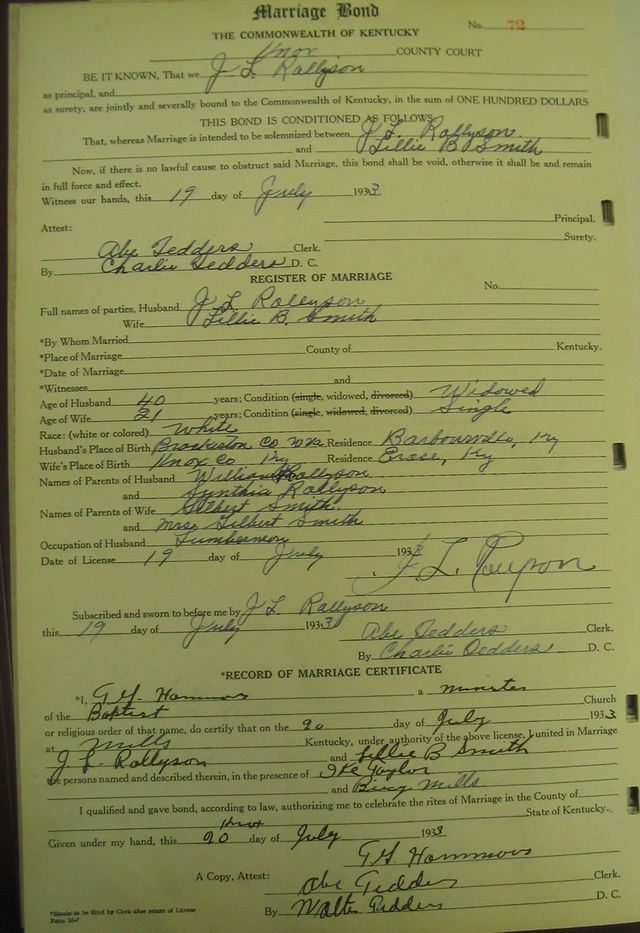 Marriage Bond
No. 72
THE COMMONWEALTH OF KENTUCKY
Knox COUNTY COURT
BE IT KNOWN, That we J L Rollyson
as principal, and
as surety, are jointly and severally bound to the Commonwealth of Kentucky, in the sum of ONE HUNDRED DOLLARS
THIS BOND IS CONDITIONED AS FOLLOWS
That, whereas Marriage is intended to be solemnized between J L. Rollyson.
and Lillie B Smith
Now, if there is no lawful cause to obstruct said Marriage, this bond shall be void, otherwise it shall be and remain
in full force and effect.
Witness our hands, this 19 day of July 1933
Principal.
Attest: Surety.
Abe Tedders Clerk.
By Charlie Tedders D. C.
REGISTER OF MARRIAGE
No.
Full names of parties, Husband J L Rollyson
Wife Lillie B. Smith
*By Whom Married
*Place of Marriage County of Kentucky.
*Date of Marriage
*Witnesses and
Age of Husband 40 years; Condition (single, widowed, divorced) Widowed
Age of Wife 21 years; Condition (single, widowed, divorced) Single
Race: (white or colored) White
Husband's Place of Birth Co W Va Residence Barbourville, Ky
Wife's Place of Birth Knox Co Ky Residence Erose, Ky
Names of Parents of Husband William Rollyson
and Synthia Rollyson
Names of Parents of Wife Gilbert Smith.
and Mrs Gilbert Smith
Occupation of Husband Lumberman
Date of License 19 day of July 1933
J L
Subscribed and sworn to before me by J L Rollyson
this 19 day of July 1933 Abe Tedders Clerk.
By Charlie Tedders D. C.
*RECORD OF MARRIAGE CERTIFICATE
*I, G. G. Hammons a minister
of the Baptist Church
or religious order of that name, do certify that on the 20 day of July 1933
at Mills Kentucky, under authority of the above license, I united in Marriage
J. L. Rollyson and Lillie B Smith
the persons named and described therein, in the presence of Ike Taylor
and Mills
I qualified and gave bond, according to law, authorizing me to celebrate the rites of Marriage in the County of
Knox State of Kentucky.
Given under my hand, this 20 day of July 1933
G. G. Hammons
A Copy, Attest: Abe Tedders Clerk.
By Walter Tedders D. C.
*Blanks to be filed by Clerk after return of License